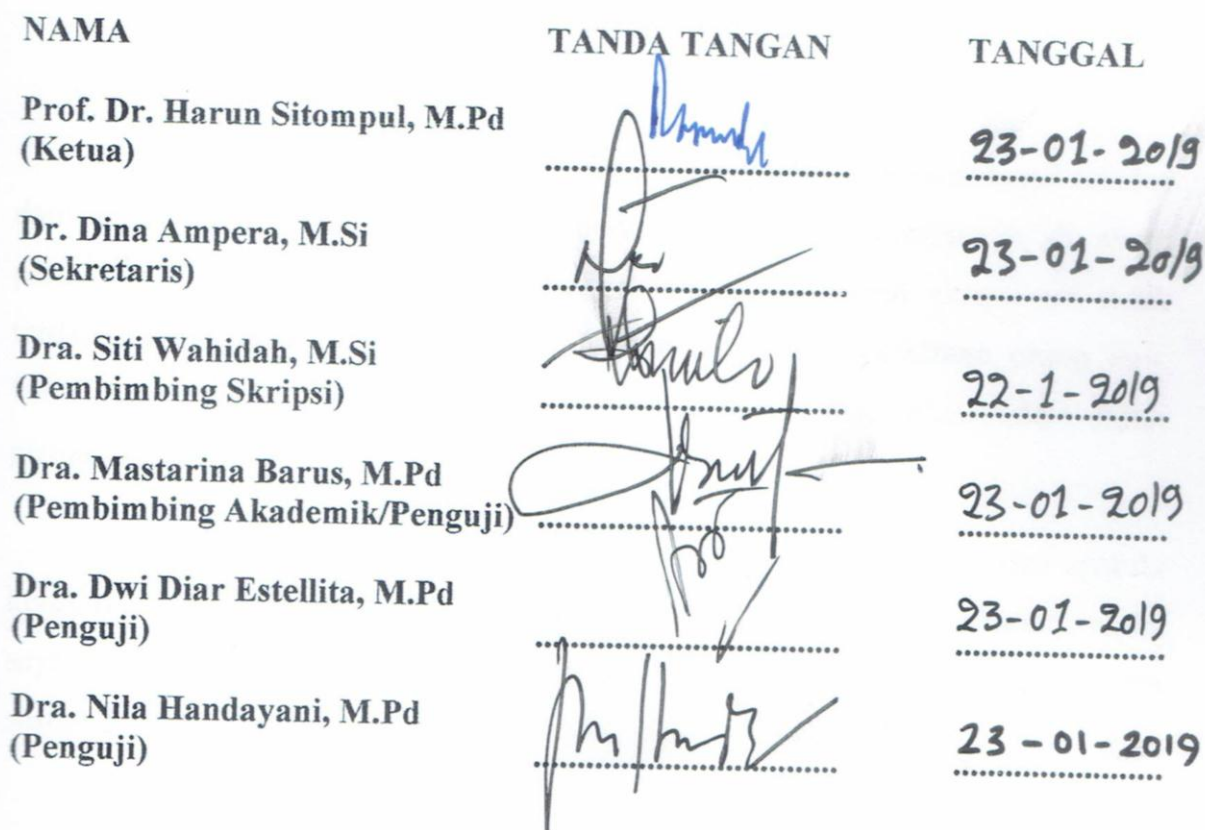 NAMA TANDA TANGAN TANGGAL
Prof. Dr. Harun Sitompul, M.Pd
(Ketua) 23-01-2019
Dr. Dina Ampera, M.Si
(Sekretaris) 23-01-2019
Dra. Siti Wahidah, M.Si
(Pembimbing Skripsi) 22-1-2019
Dra. Mastarina Barus, M.Pd
(Pembimbing Akademik/Penguji) 23-01-2019
Dra. Dwi Diar Estellita, M.Pd
(Penguji) 23-01-2019
Dra. Nila Handayani, M.Pd
(Penguji) 23-01-2019